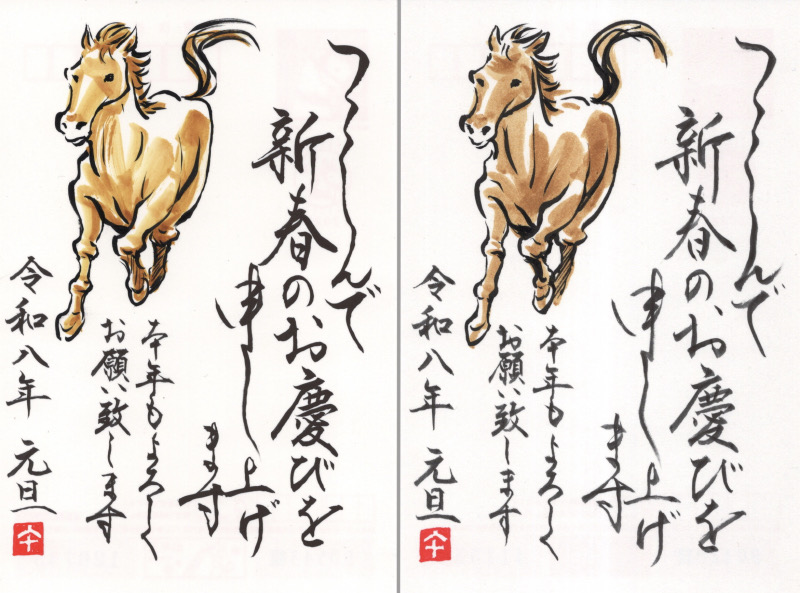 つゝしんで
新春のお慶びを
申し上げ
ます
本年もよろしく
お願い致します
令和八年 元旦
つゝしんで
新春のお慶びを
申し上げ
ます
本年もよろしく
お願い致します
令和八年 元旦